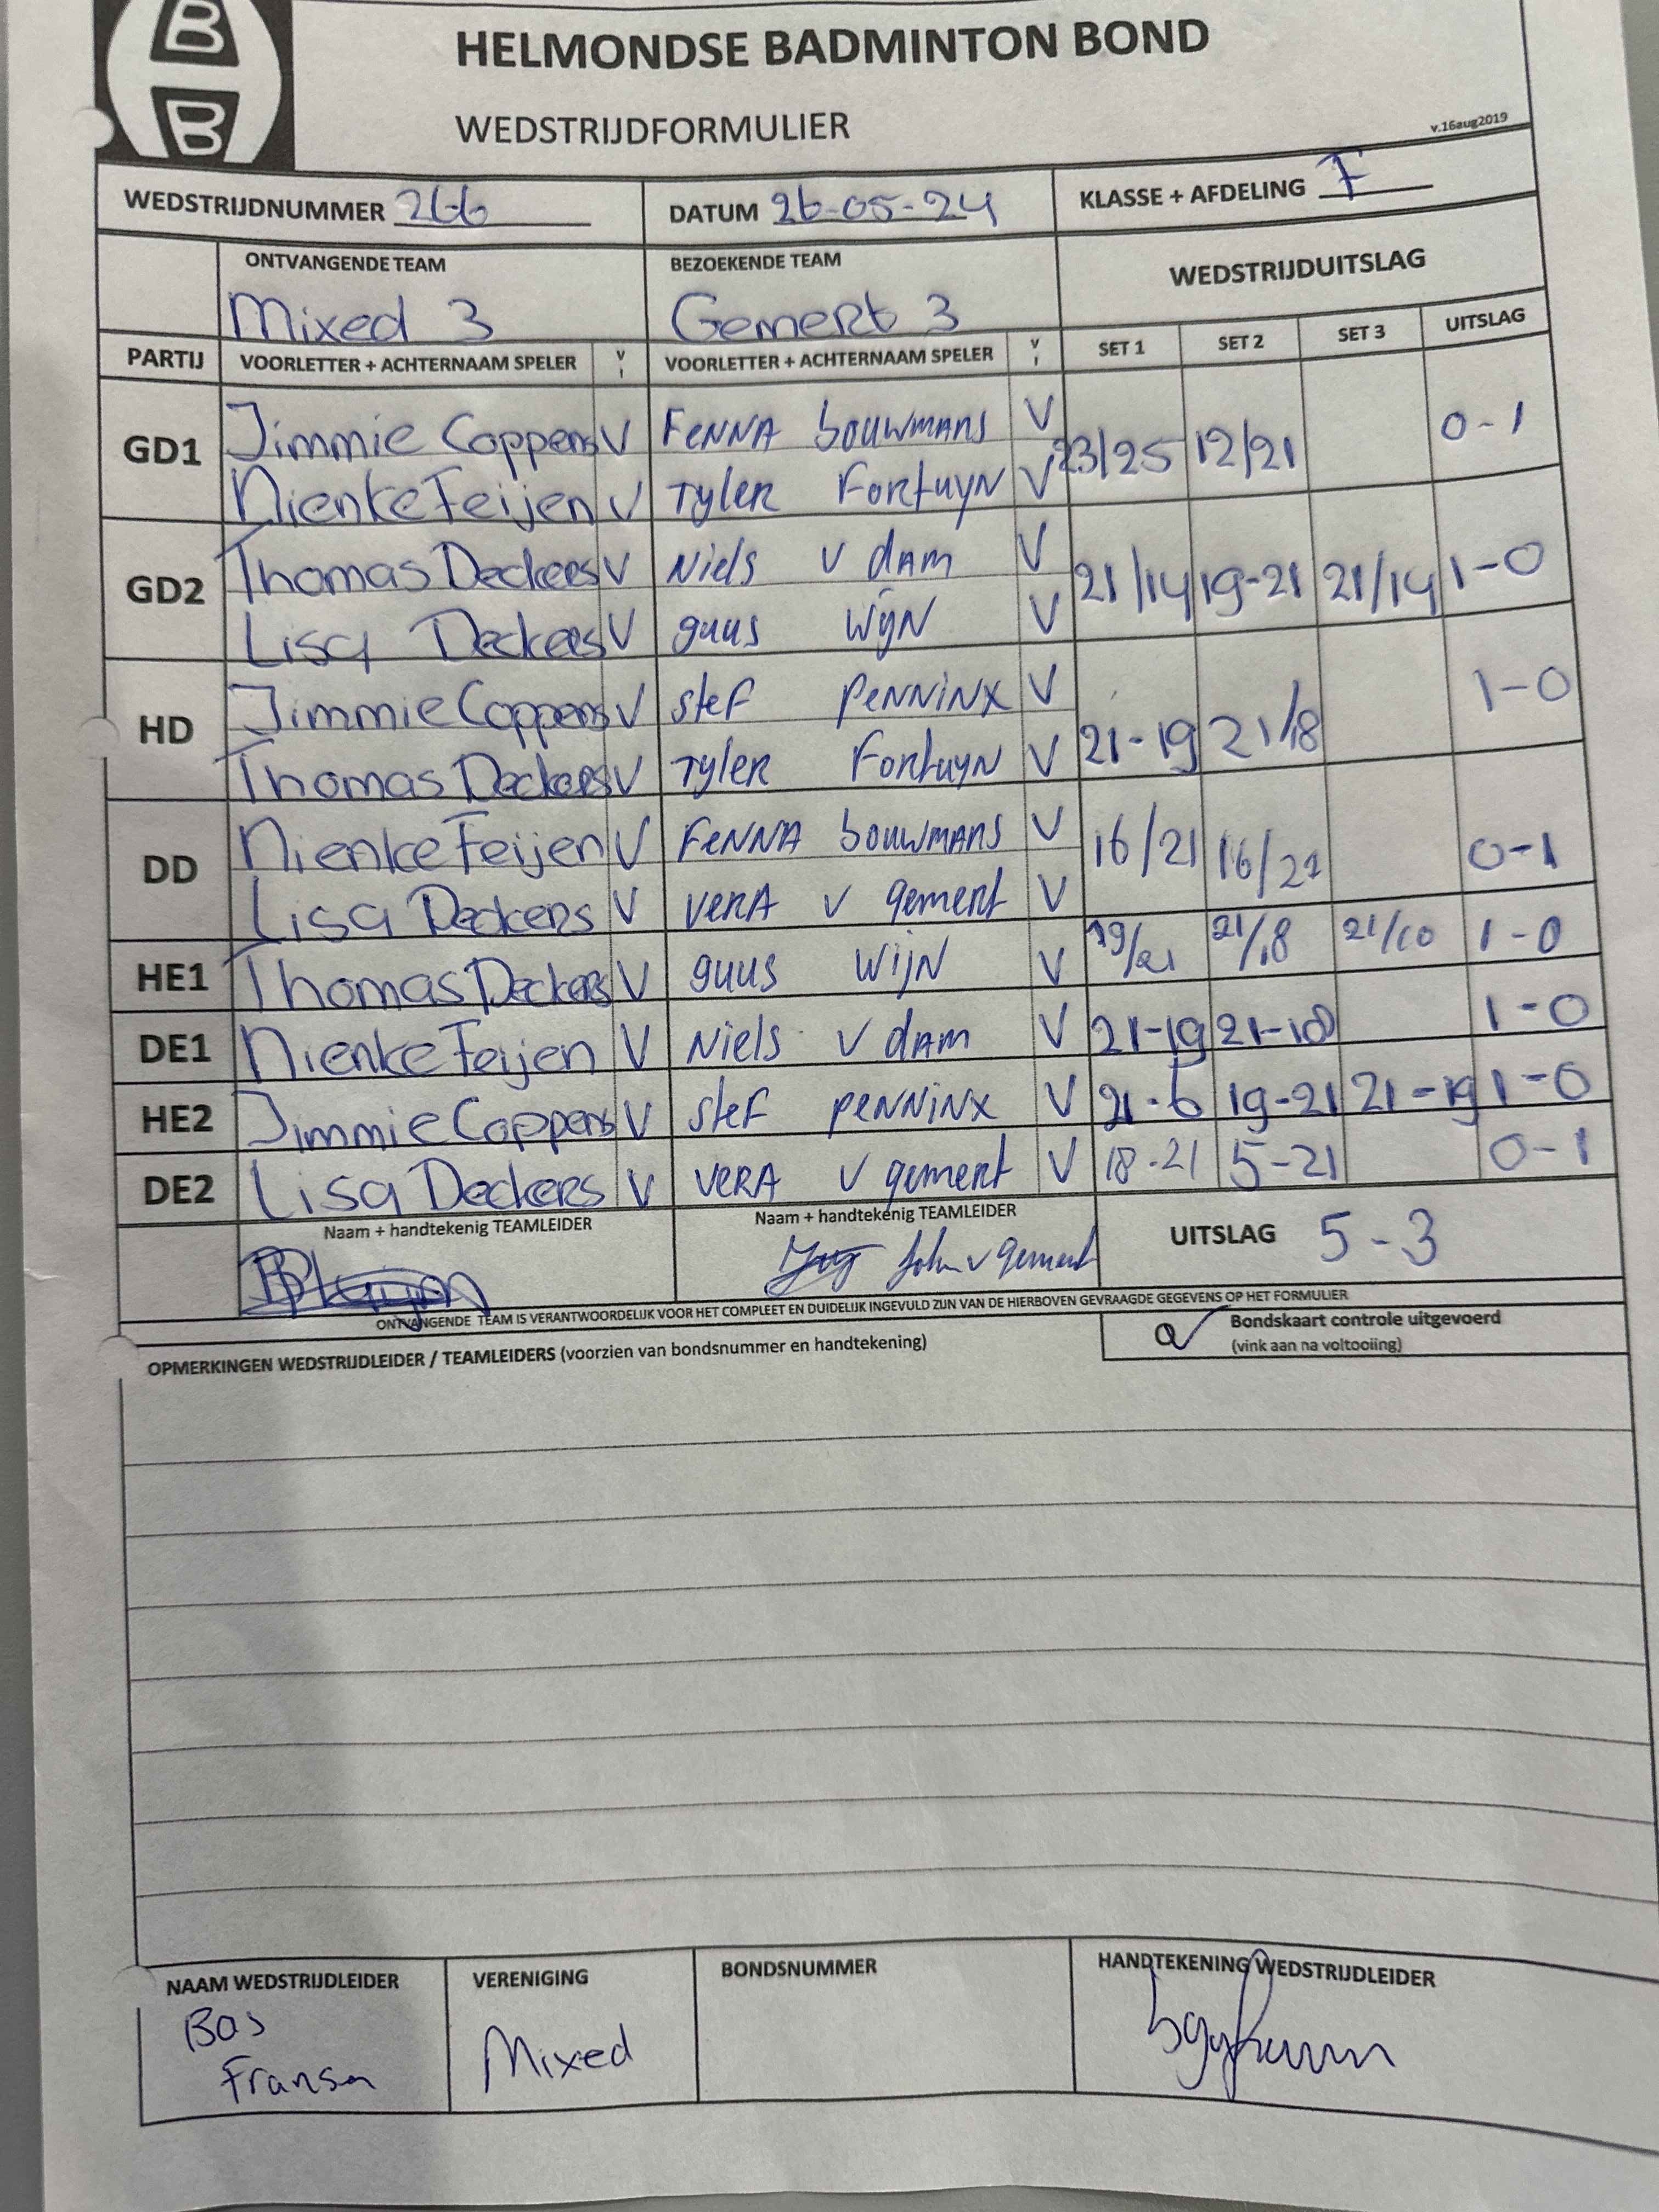 B
B
HELMONDSE BADMINTON BOND
WEDSTRIJDFORMULIER
v.16aug2019
WEDSTRIJDNUMMER 266 DATUM 26-05-24 KLASSE + AFDELING F
ONTVANGENDE TEAM BEZOEKENDE TEAM WEDSTRIJDUITSLAG
Mixed 3 Gemert 3
PARTIJ VOORLETTER + ACHTERNAAM SPELER V I VOORLETTER + ACHTERNAAM SPELER V I SET 1 SET 2 SET 3 UITSLAG
GD1 Jimmie Coppens V FENNA bouwmans V 23/25 12/21 0-1
Nienke Feijen V TYLER Fortuyn V
GD2 Thomas Deckers V Niels v dam V 21/14 19-21 21/14 1-0
Lisa Deckers V guus Wijn V
HD Jimmie Coppens V stef penninx V 21-19 21/18 1-0
Thomas Deckers V TYLER Fortuyn V
DD Nienke Feijen V FENNA bouwmans V 16/21 16/21 0-1
Lisa Deckers V VERA v gemert V
HE1 Thomas Deckers V guus Wijn V 19/21 21/18 21/10 1-0
DE1 Nienke Feijen V Niels v dam V 21-19 21-18 1-0
HE2 Jimmie Coppens V stef penninx V 21-6 19-21 21-19 1-0
DE2 Lisa Deckers V VERA v gemert V 18-21 5-21 0-1
Naam + handtekenig TEAMLEIDER Naam + handtekenig TEAMLEIDER UITSLAG 5-3
John v Gemert
ONTVANGENDE TEAM IS VERANTWOORDELIJK VOOR HET COMPLEET EN DUIDELIJK INGEVULD ZIJN VAN DE HIERBOVEN GEVRAAGDE GEGEVENS OP HET FORMULIER
OPMERKINGEN WEDSTRIJDLEIDER / TEAMLEIDERS (voorzien van bondsnummer en handtekening) Bondskaart controle uitgevoerd
(vink aan na voltooiing)
NAAM WEDSTRIJDLEIDER VERENIGING BONDSNUMMER HANDTEKENING WEDSTRIJDLEIDER
Bas Mixed
Fransen